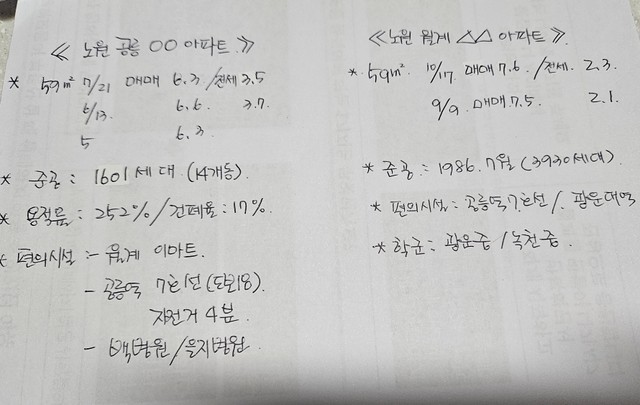 《 노원 공릉 OO 아파트 》
* 59m² 7/21 매매 6.3 /전세 3.5
6/13. 6.6. 3.7.
5 6.3
* 준공 : 1601세대 (14개동)
* 용적률 : 252% / 건폐율 : 17%.
* 편의시설 :- 월계 이마트.
- 공릉역 7호선 (도보8).
자전거 4분.
- 백병원/을지병원
《노원 월계 △△ 아파트 》
* 59m². 10/17. 매매 7.6. /전세. 2.3.
9/9. 매매 7.5. 2.1.
* 준공 : 1986. 7월 (3930세대)
* 편의시설 : 공릉역 7호선 /. 광운대역
* 학군 : 광운중 / 녹천중.